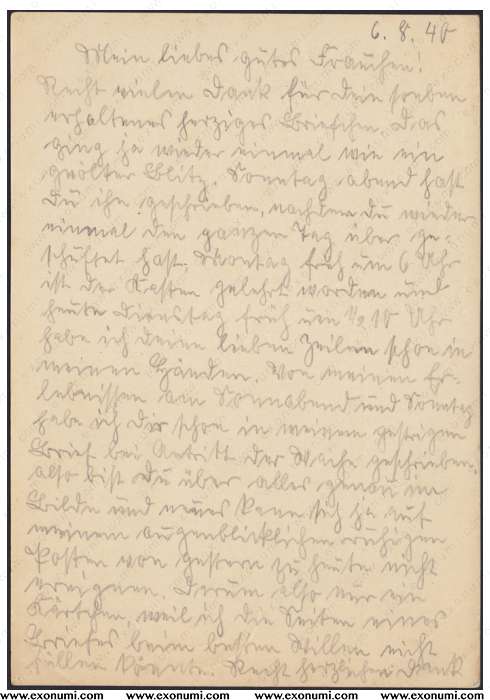 6. 8. 40
Mein liebes gutes Frauchen!
Recht vielen Dank für Dein soeben
erhaltenes herziges Briefchen. Das
ging ja wieder einmal wie ein
geölter Blitz. Sonntag abend hast
Du ihn geschrieben, nachdem Du wieder
einmal den ganzen Tag über ge-
schuftet hast. Montag früh um 6 Uhr
ist der Kasten geleert worden und
heute Dienstag früh um 1/2 10 Uhr
habe ich deine lieben Zeilen schon in
meinen Händen. Von meinen Er-
lebnissen am Sonnabend und Sonntag
habe ich Dir schon in meinem gestrigen
Brief bei Antritt der Wache geschrieben,
also bist Du über alles genau im
Bilde und neues kann sich ja auf
meinem augenblicklichen ruhigen
Posten von gestern zu heute nicht
ereignen. Darum also nur ein
Kärtchen, weil ich die Seiten eines
Briefes beim besten Willen nicht
füllen könnte. Recht herzlichen Dank
www.exonumi.com www.exonumi.com www.exonumi.com www.exonumi.com